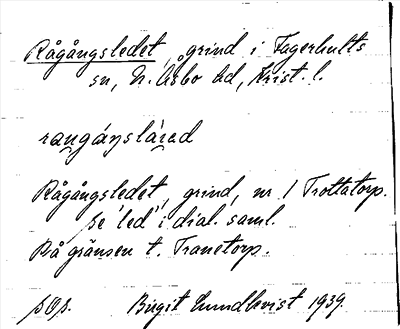 Rågångsledet, grind i Fagerhults
sn, N. Åsbo hd, Krist. l.
Rågångsledet, grind, nr 1 Trottatorp.
se "led" i dial. saml.
På gränsen t. Tranetorp.
Birgit Lundkvist 1939.